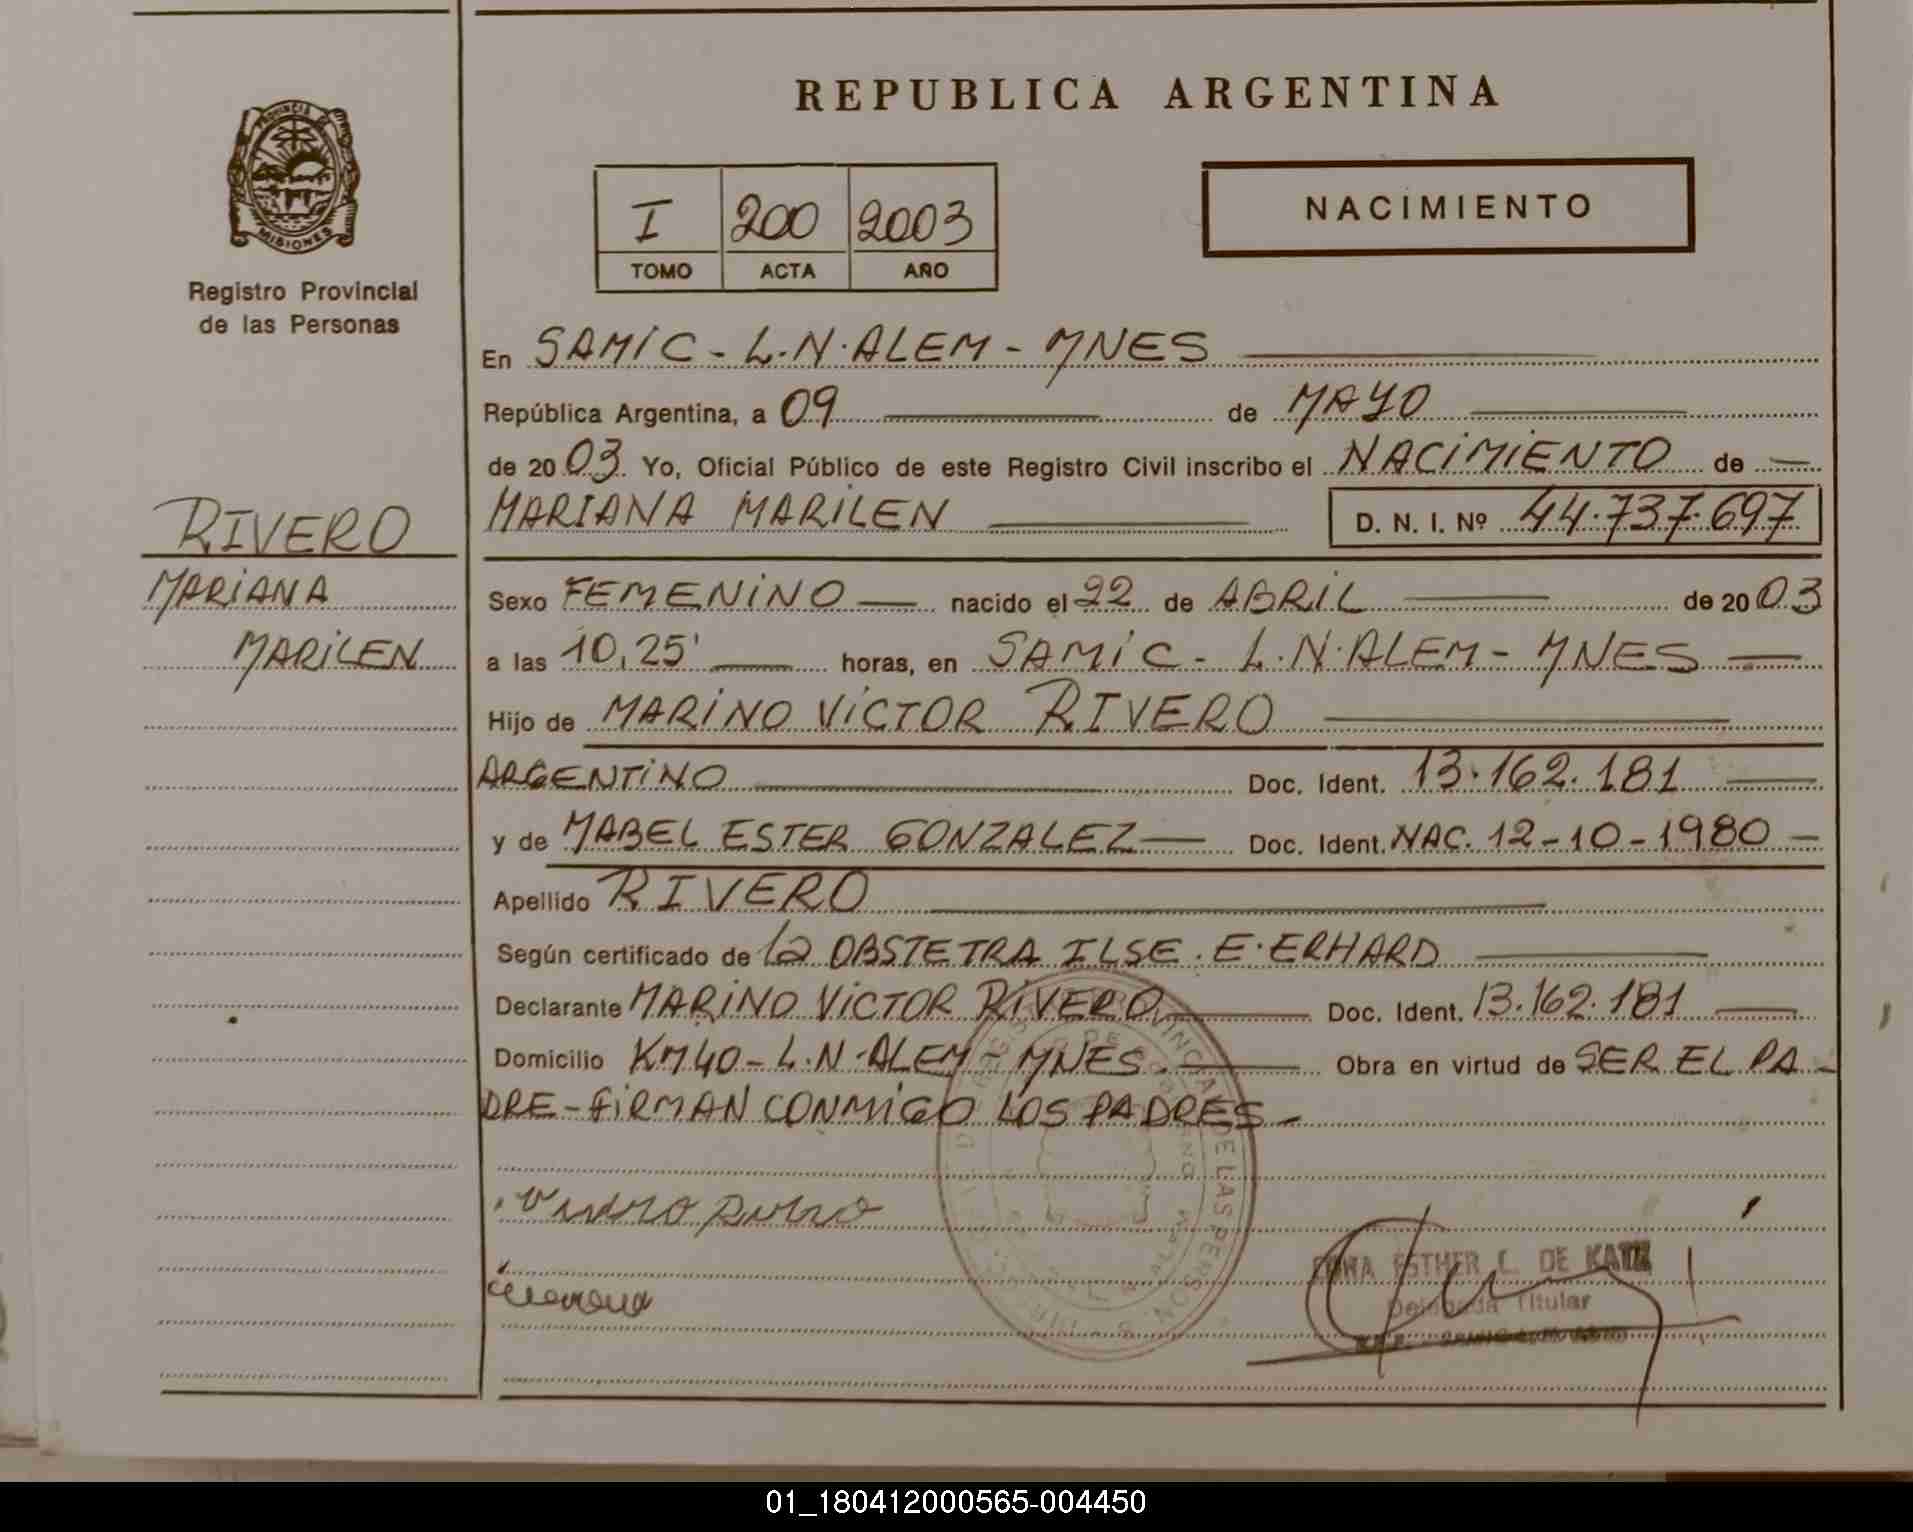 REPUBLICA ARGENTINA
PROVINCIA DE
MISIONES
Registro Provincial
de las Personas
I 200 2003
TOMO ACTA AÑO
NACIMIENTO
En SAMIC - L.N. ALEM - MNES
República Argentina, a 09 de MAYO
de 2003. Yo, Oficial Público de este Registro Civil inscribo el NACIMIENTO de
RIVERO
MARIANA MARILEN D. N. I. Nº 44.737.697
MARIANA
Sexo FEMENINO nacido el 22 de ABRIL de 2003
MARILEN
a las 10,25' horas, en SAMIC - L.N. ALEM - MNES
Hijo de MARINO VICTOR RIVERO
ARGENTINO Doc. Ident. 13.162.181
y de MABEL ESTER GONZALEZ Doc. Ident. NAC. 12-10-1980
Apellido RIVERO
Según certificado de la OBSTETRA ILSE. E. ERHARD
Declarante MARINO VICTOR RIVERO Doc. Ident. 13.162.181
Domicilio KM40 - L.N. ALEM - MNES. Obra en virtud de SER EL PA-
DRE - FIRMAN CONMIGO LOS PADRES.-
ESTHER L. DE KATZ
Delegada Titular
01_180412000565-004450